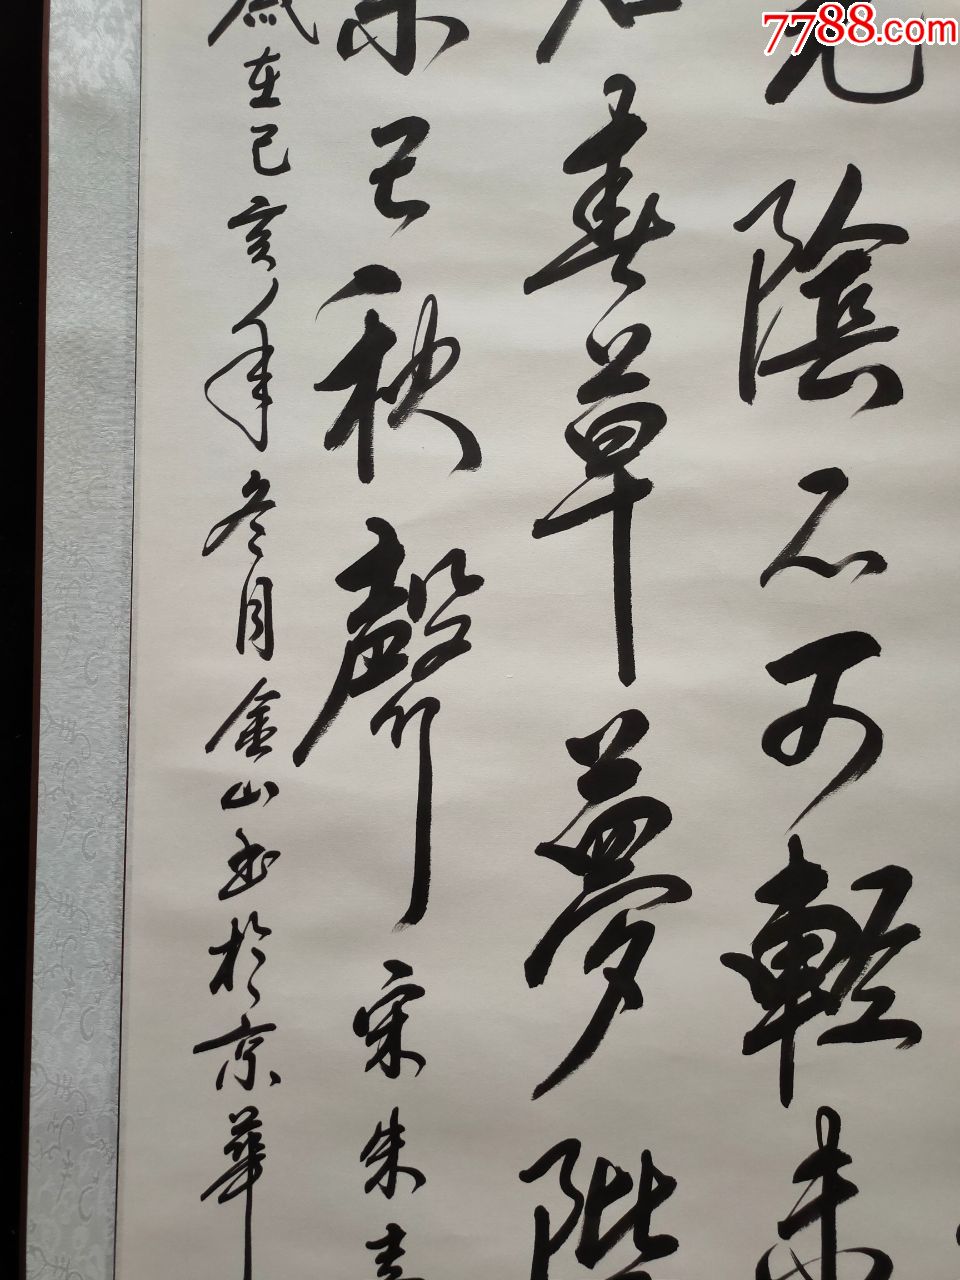 7788.com
光陰不可輕未
春草夢階
葉已秋聲宋朱熹
歲在己亥年冬月金山書於京華